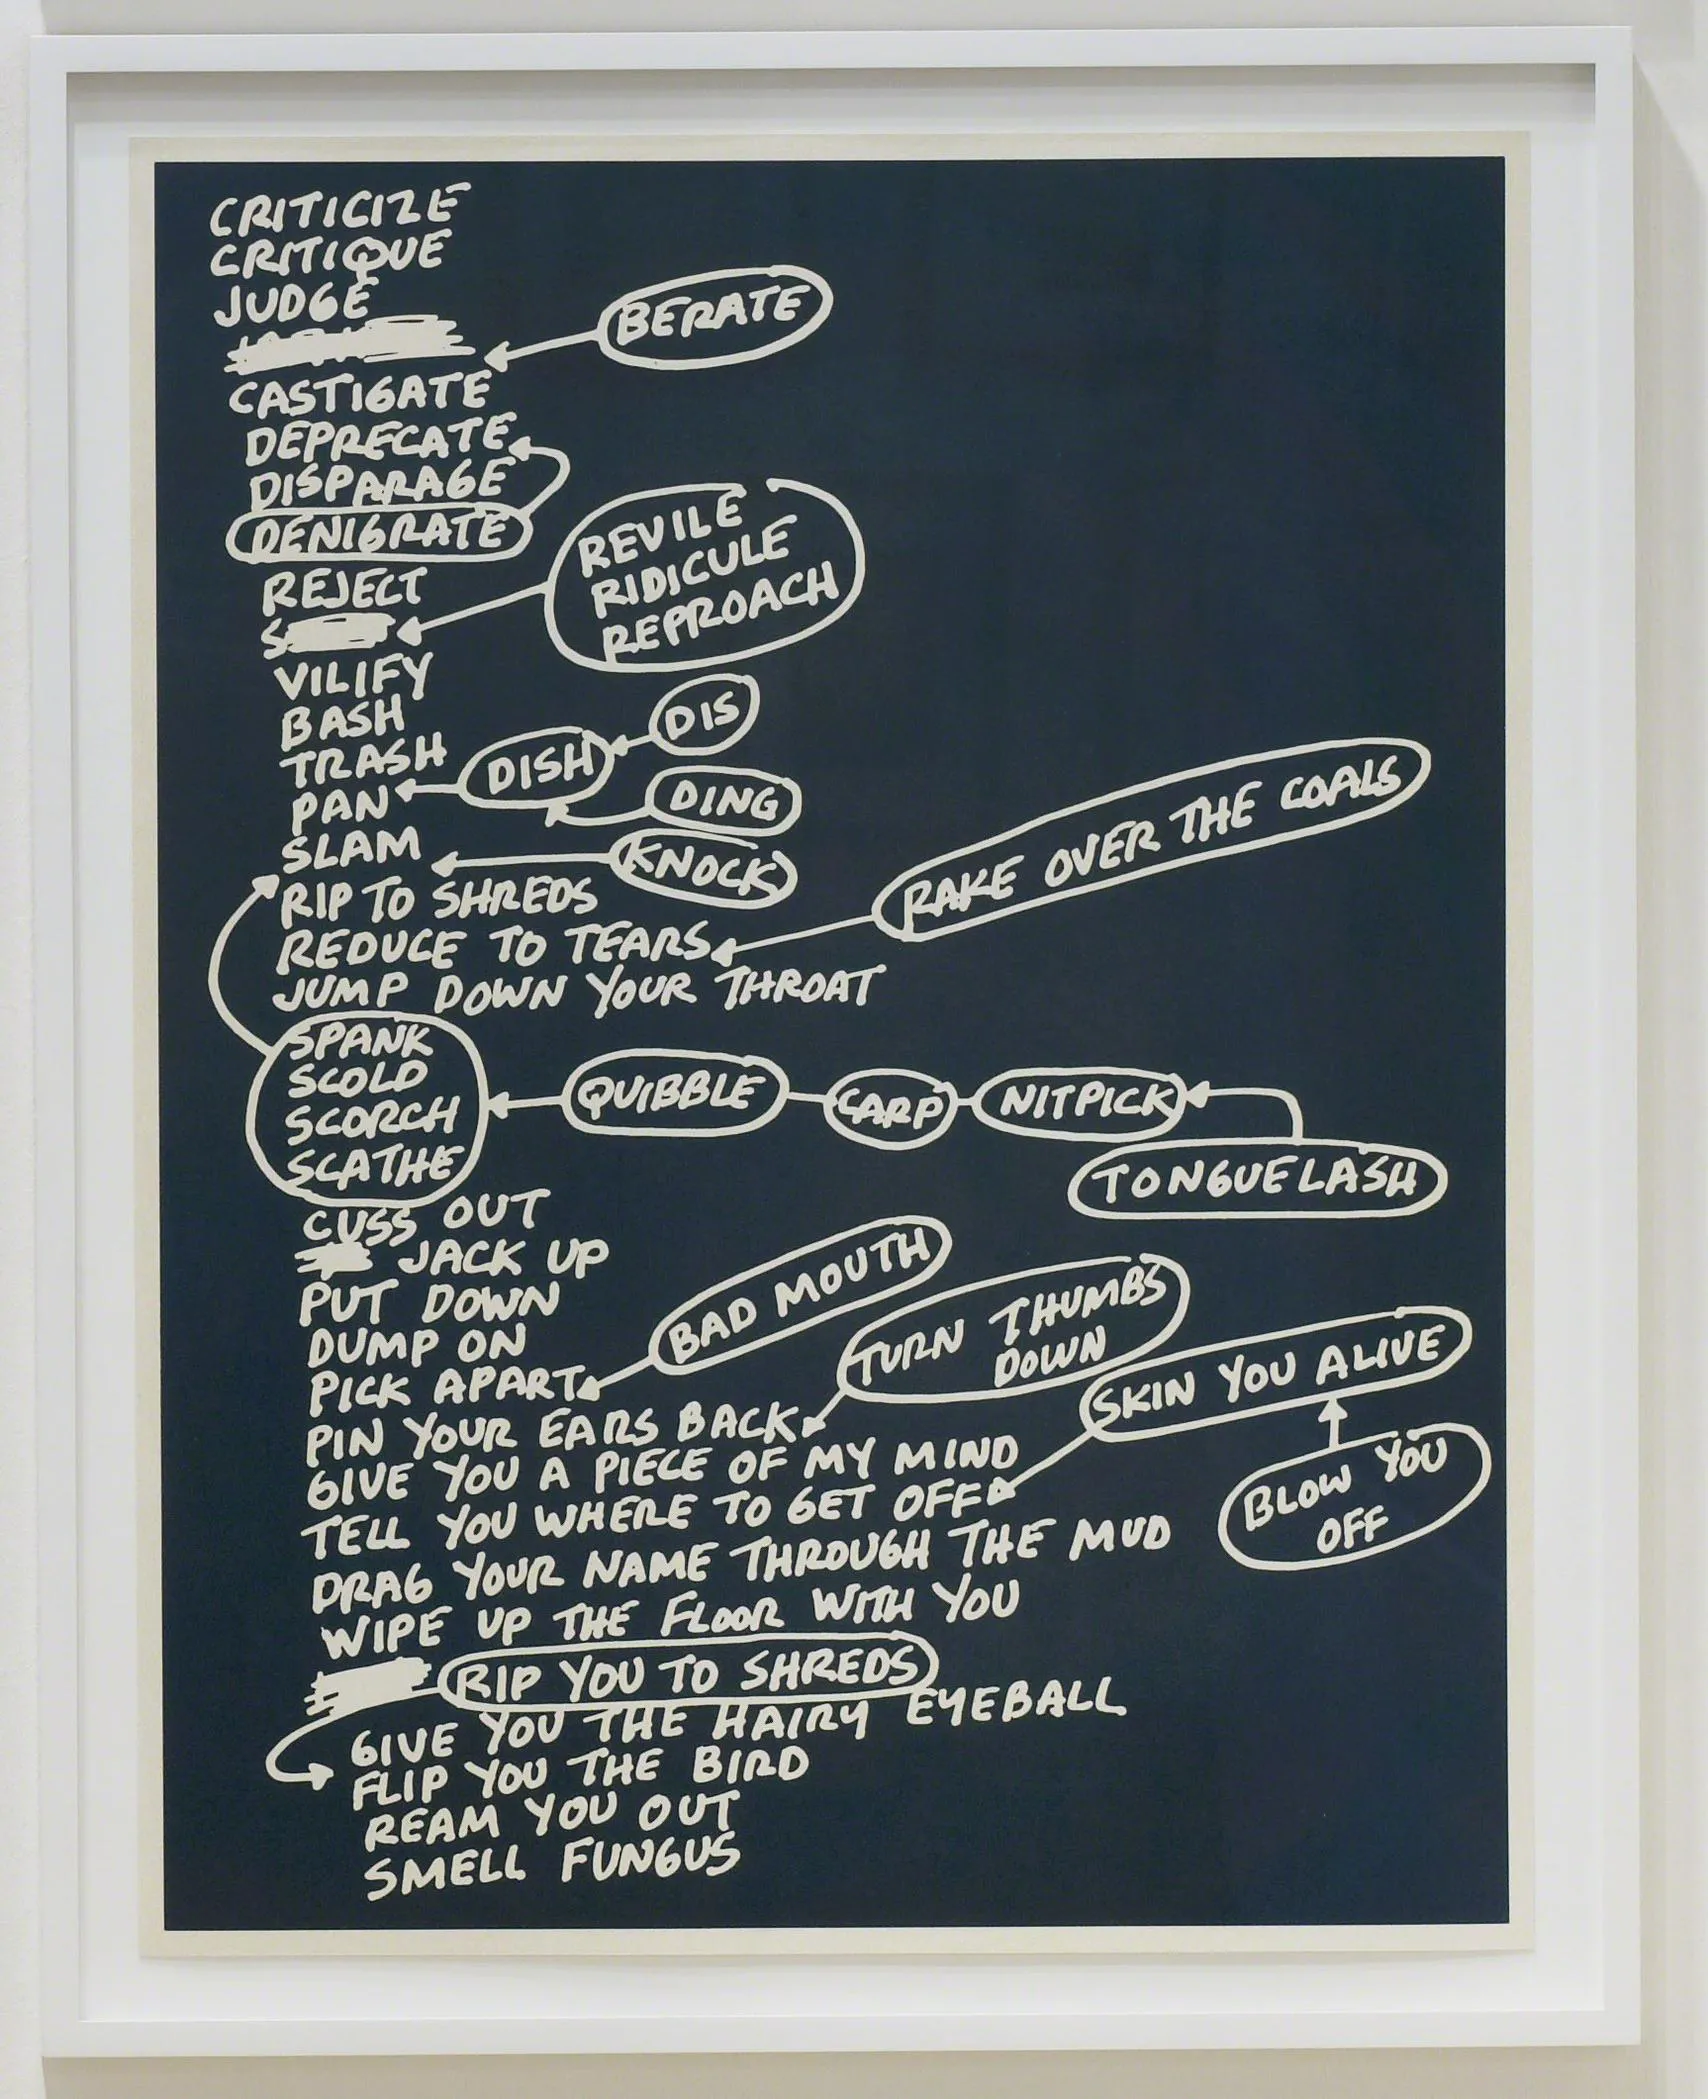 CRITICIZE
CRITIQUE
JUDGE
BERATE
CASTIGATE
DEPRECATE
DISPARAGE
DENIGRATE
REVILE
RIDICULE
REPROACH
REJECT
S
VILIFY
BASH
TRASH
DIS
DISH
PAN
DING
SLAM
KNOCK
RIP TO SHREDS
RAKE OVER THE COALS
REDUCE TO TEARS
JUMP DOWN YOUR THROAT
SPANK
SCOLD
SCORCH
SCATHE
QUIBBLE
CARP
NITPICK
TONGUELASH
CUSS OUT
JACK UP
PUT DOWN
DUMP ON
BAD MOUTH
PICK APART
TURN THUMBS
DOWN
PIN YOUR EARS BACK
GIVE YOU A PIECE OF MY MIND
SKIN YOU ALIVE
BLOW YOU
OFF
TELL YOU WHERE TO GET OFF
DRAG YOUR NAME THROUGH THE MUD
WIPE UP THE FLOOR WITH YOU
RIP YOU TO SHREDS
GIVE YOU THE HAIRY EYEBALL
FLIP YOU THE BIRD
REAM YOU OUT
SMELL FUNGUS